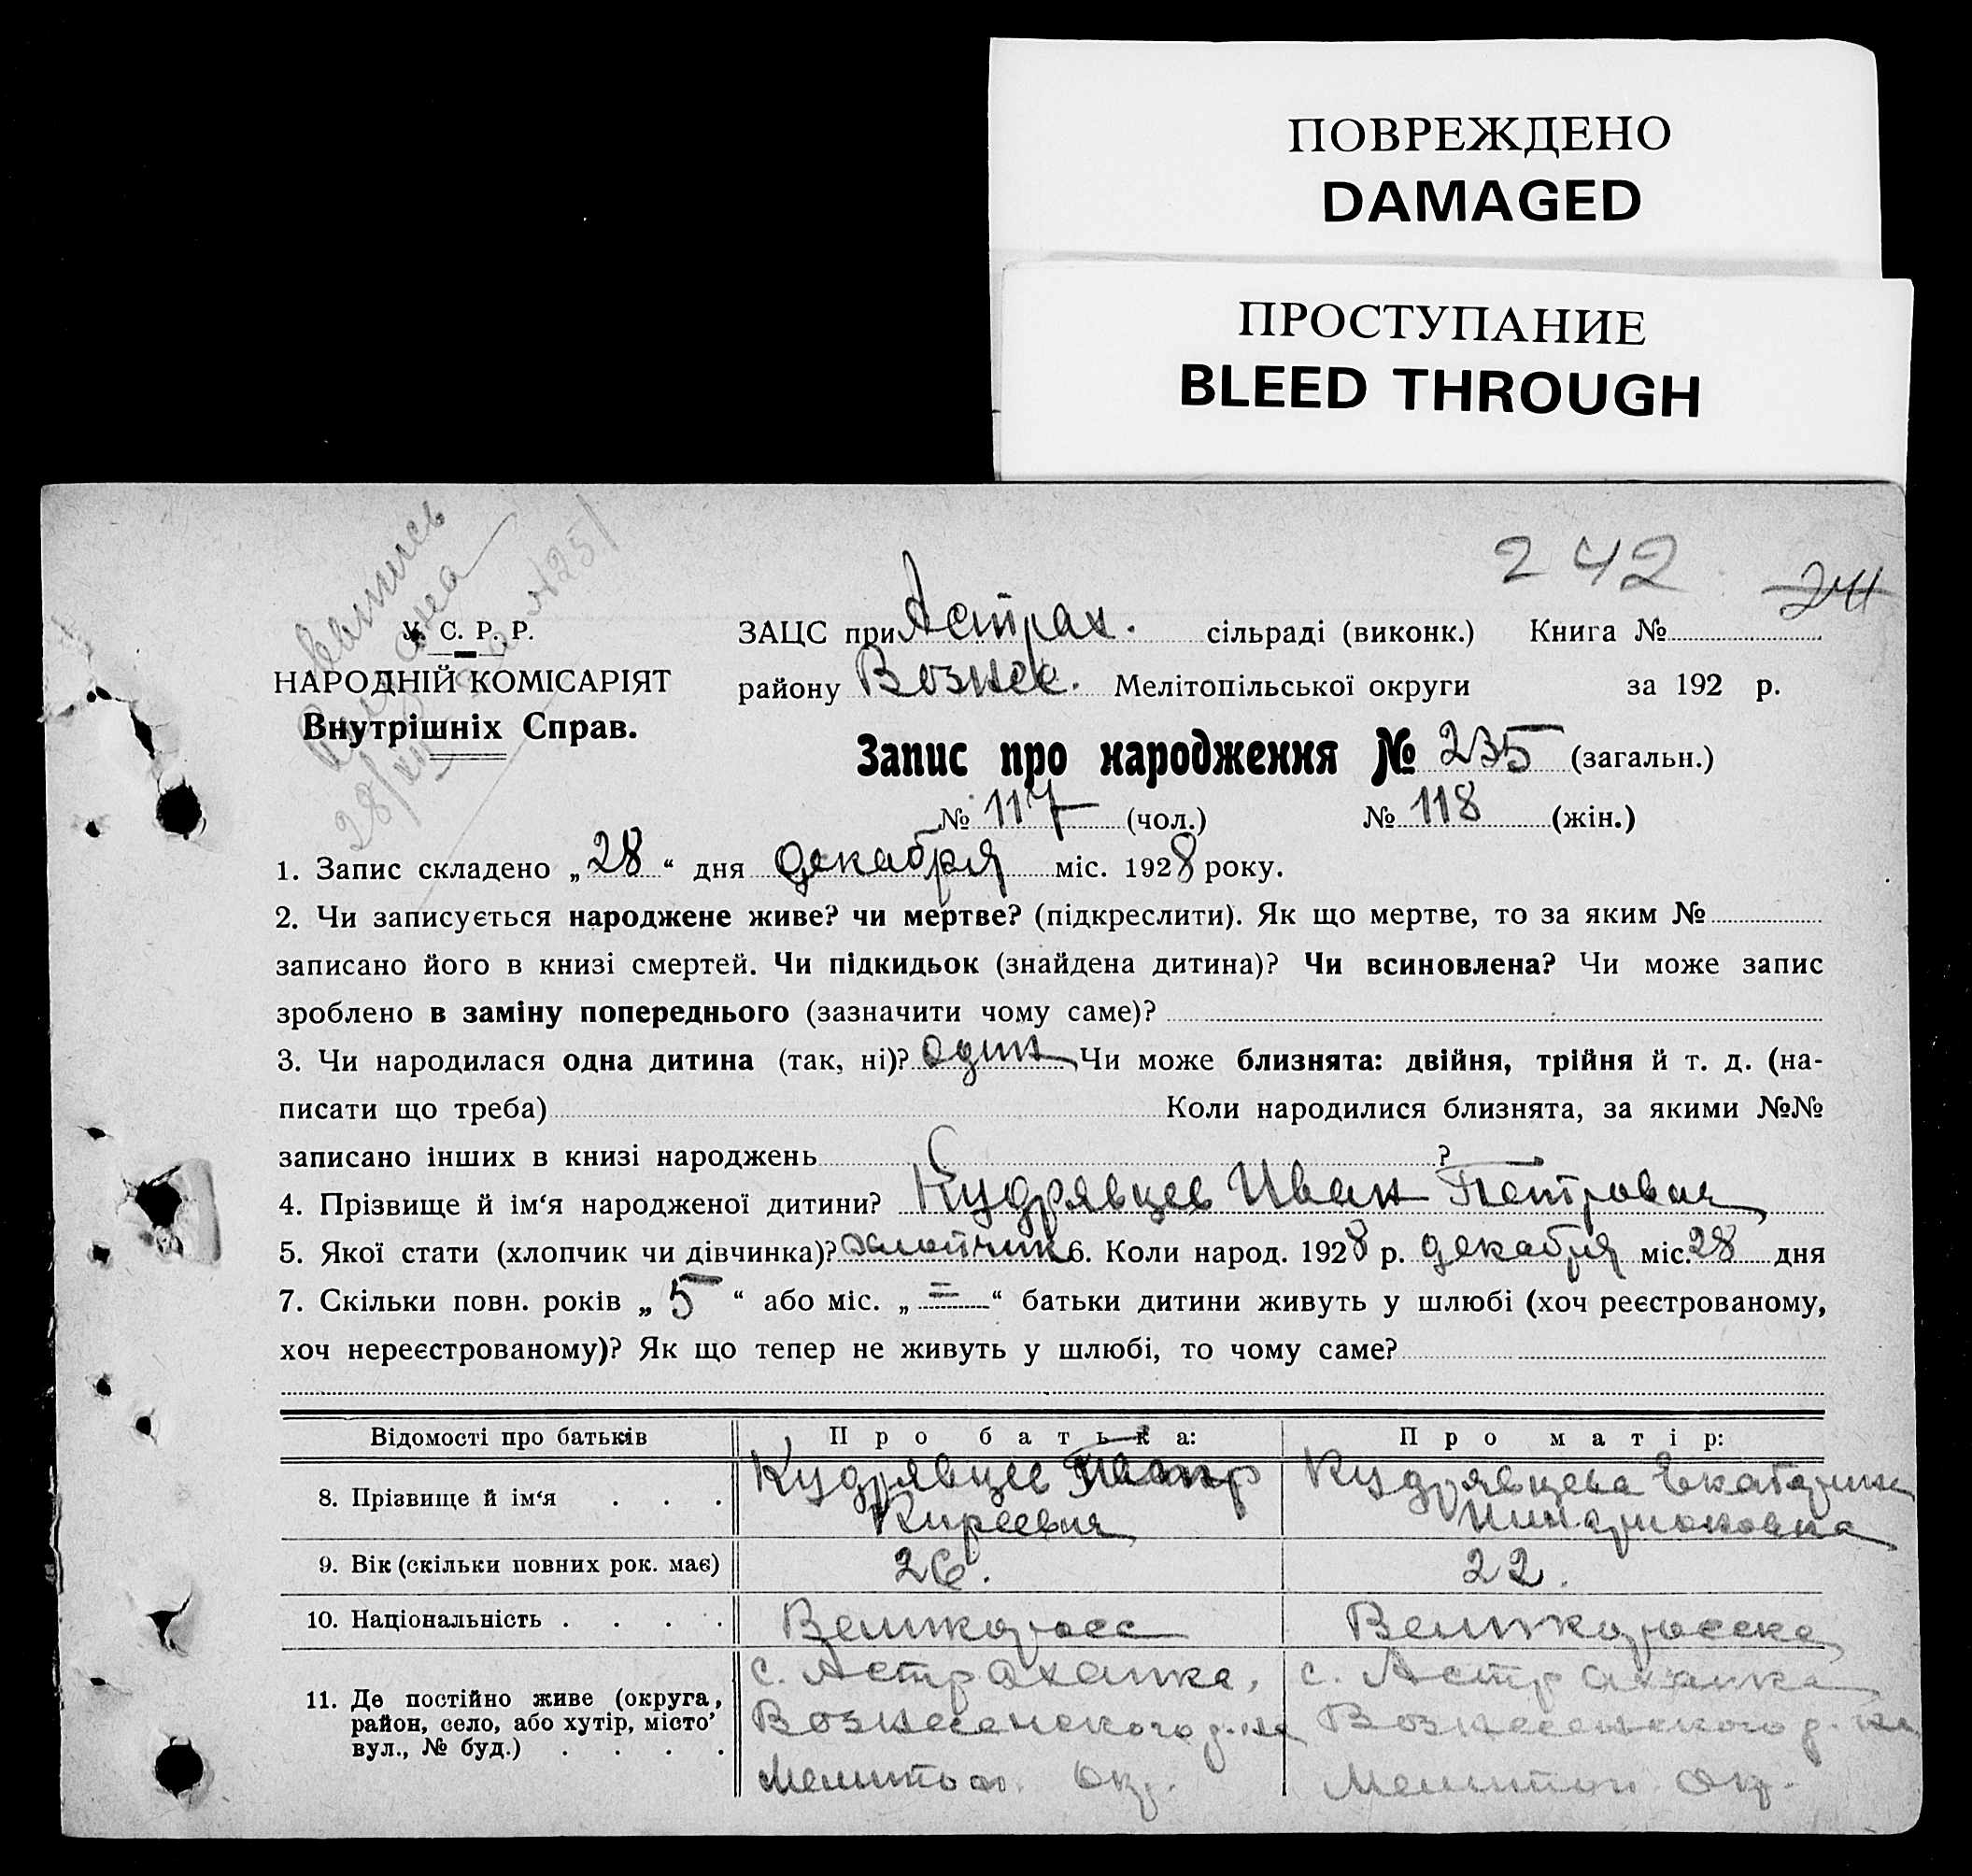 ПОВРЕЖДЕНО
DAMAGED
ПРОСТУПАНИЕ
BLEED THROUGH
242 24
У. С. Р. Р.
НАРОДНІЙ КОМІСАРІЯТ
Внутрішніх Справ.
28/XII
ЗАЦС при Астрах. сільраді (виконк.) Книга №
району Вознес. Мелітопільської округи за 192 р.
Запис про народження № 235 (загальн.)
№ 117 (чол.) № 118 (жін.)
1. Запис складено „28“ дня декабря міс. 1928 року.
2. Чи записується народжене живе? чи мертве? (підкреслити). Як що мертве, то за яким №
записано його в книзі смертей. Чи підкидьок (знайдена дитина)? Чи всиновлена? Чи може запис
зроблено в заміну попереднього (зазначити чому саме)?
3. Чи народилася одна дитина (так, ні)? один Чи може близнята: двійня, трійня й т. д. (на-
писати що треба) Коли народилися близнята, за якими №№
записано інших в книзі народжень ?
4. Прізвище й ім‘я народженої дитини? Кудрявцев Иван Петрович
5. Якої стати (хлопчик чи дівчинка)? хлопчик 6. Коли народ. 1928 р. декабря міс. 28 дня
7. Скільки повн. років „5“ або міс. „=“ батьки дитини живуть у шлюбі (хоч реєстрованому,
хоч нереєстрованому)? Як що тепер не живуть у шлюбі, то чому саме?
Відомості про батьків Про батька: Про матір:
8. Прізвище й ім‘я . . . Кудрявцев Петр Киреевич Кудрявцева Екатерина
9. Вік (скільки повних рок. має) 26. 22.
10. Національність . . . . Великоросс Великоросска
11. Де постійно живе (округа, с. Астраханка, с. Астраханка
район, село, або хутір, місто’ Вознесенского р-на Вознесенского р-на
вул., № буд.) . . . . Мелитоп. Окр. Мелитоп. Окр.